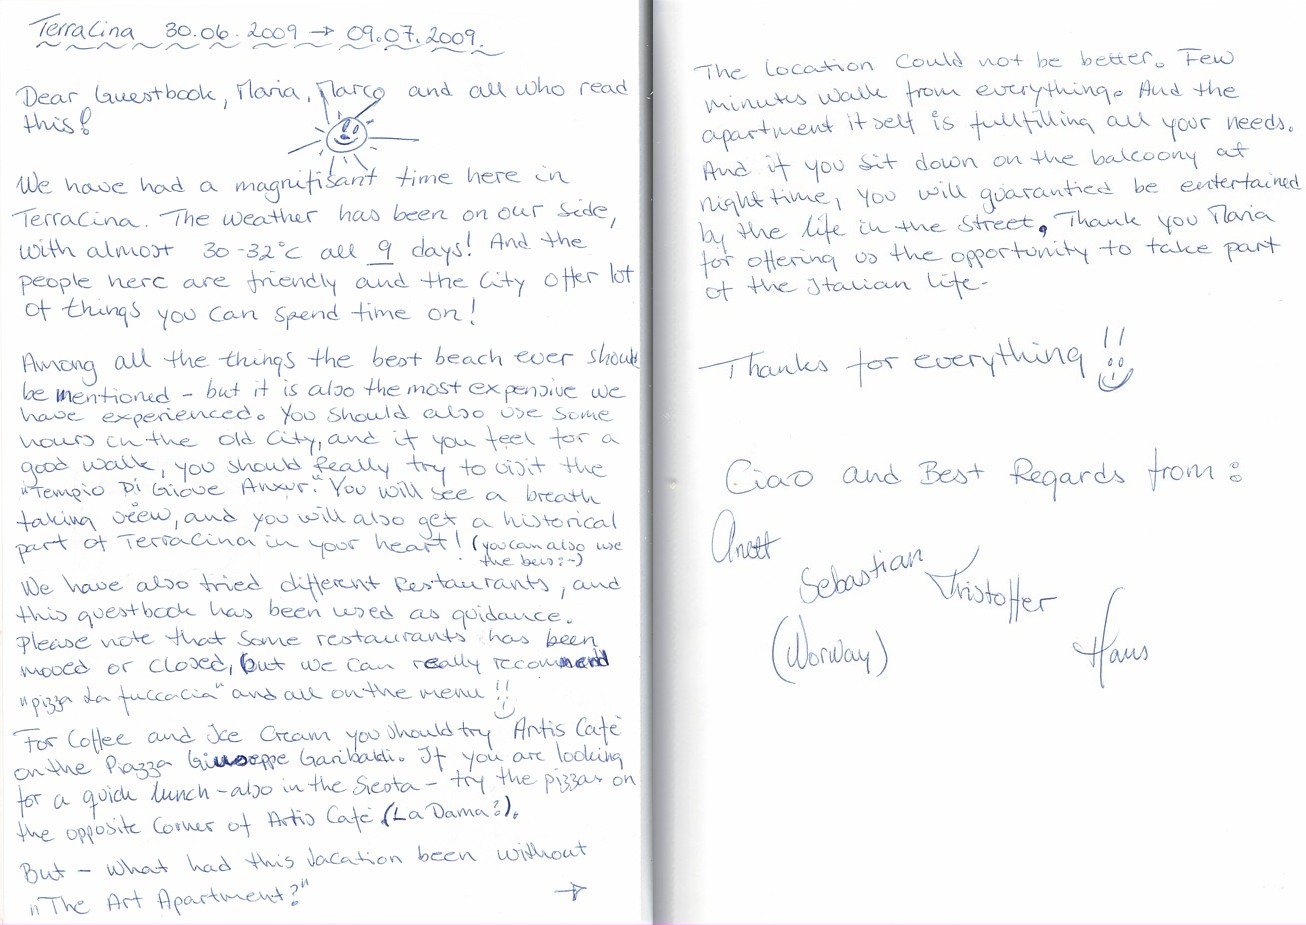 Terracina 30.06.2009 → 09.07.2009.
Dear Guestbook, Maria, Marco and all who read
this!
We have had a magnifisant time here in
Terracina. The weather has been on our side,
with almost 30-32°C all 9 days! And the
people here are friendly and the City offer lot
of things you can spend time on!
Among all the things the best beach ever should
be mentioned - but it is also the most expensive we
have experienced. You should also use some
hours in the old City, and if you feel for a
good walk, you should really try to visit the
"Tempio Di Giove Anxur." You will see a breath
taking view, and you will also get a historical
part of Terracina in your heart! (you can also use
the bus :-)
We have also tried different Restaurants, and
this guestbook has been used as guidance.
Please note that some restaurants has been
moved or closed, but we can really recommend
"pizza La fuccacia" and all on the menu !!
For Coffee and Ice Cream you should try Artis Cafè
on the Piazza Giuseppe Garibaldi. If you are looking
for a quick lunch - also in the Siesta - try the pizzas on
the opposite corner of Artis Cafè (La Dama?).
But - what had this vacation been without
"The Art Apartment?"
→
The location could not be better. Few
minutes walk from everything. And the
apartment itself is fullfilling all your needs.
And if you sit down on the balcoony at
night time, you will guarantied be entertained
by the life in the street. Thank you Maria
for offering us the opportunity to take part
of the Italian life.
Thanks for everything !!
Ciao and Best Regards from:
Anett
Sebastian Kristoffer
(Norway) Hans